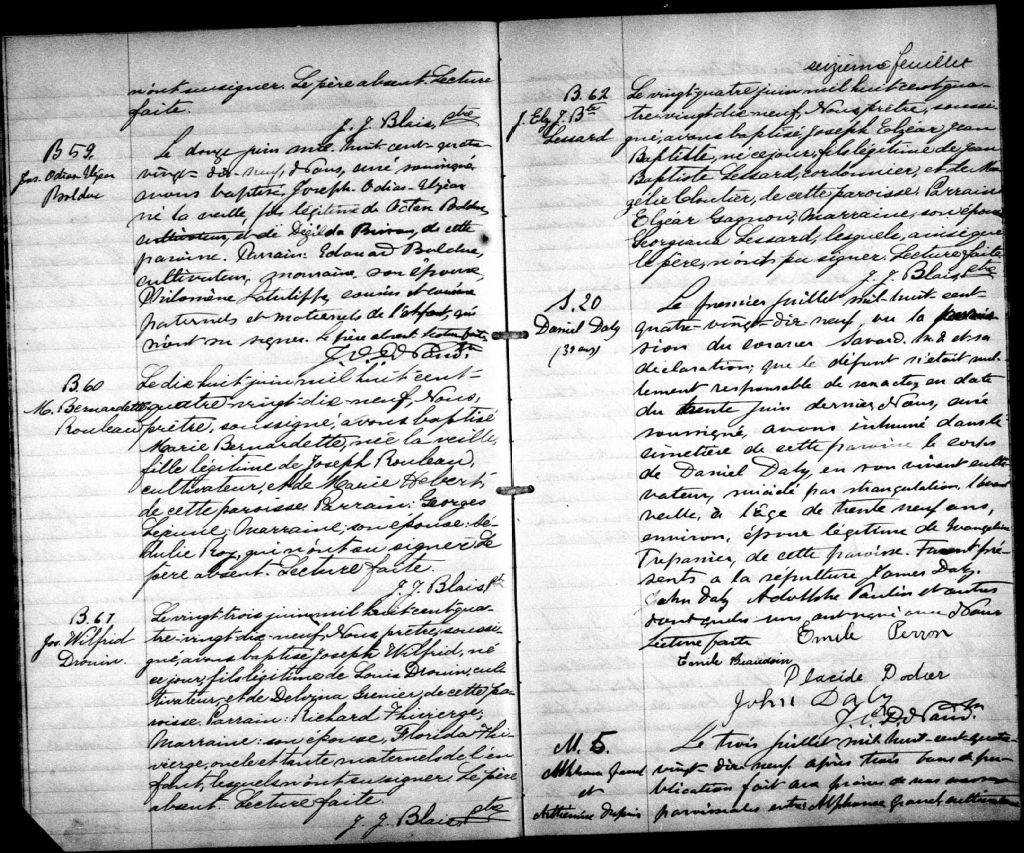 n'ont su signer. Le père absent. Lecture
faite.
J. J. Blais, ptre
B 59.
Jos. Odias Elzear
Bolduc
Le douze juin mil huit-cent-quatre
vingt-dix-neuf, Nous, curé soussigné,
avons baptisé, Joseph-Odias-Elzéar
né la veille, fils légitime de Octan Bolduc
cultivateur, et de de cette
paroisse. Parrain: Edouard Bolduc,
cultivateur, marraine, son épouse,
Philomène Latulippe, cousins et cousine
paternels et maternels de l'enfant, qui
n'ont su signer. Le père absent. Lecture faite
B.60
M. Bernardette
Rouleau
Le dix huit juin mil huit cent-
quatre vingt-dix neuf, Nous,
prêtre, soussigné, avons baptisé
Marie Bernardette, née la veille,
fille légitime de Joseph Rouleau,
cultivateur, et de Marie Hebert,
de cette paroisse. Parrain: Georges
Marraine, son épouse,
Roy, qui n'ont su signer. Le
père absent. Lecture faite.
J. J. Blais Pt
B.61
Jos Wilfrid
Drouin.
Le vingt trois juin mil huit cent qua-
tre-vingt-dix neuf, Nous, prêtre, soussi-
gné, avons baptisé Joseph Wilfrid, né
ce jour, fils légitime de Louis Drouin, cul-
tivateur, et de Delvina Grenier, de cette pa-
roisse. Parrain: Richard Thivierge;
Marraine: son épouse, Florida Thi-
vierge, oncle et tante maternels de l'en-
fant, lesquels n'ont su signer. Le père
absent. Lecture faite.
J. J. Blais, ptre
seizième feuillet
B.62
J. Elz. J. Bte
Lessard
Le vingt quatre juin mil huit cent qua-
tre vingt dix neuf, Nous, prêtre, soussi-
gné, avons baptisé, Joseph Elzéar Jean
Baptiste, né ce jour, fils légitime de Jean
Baptiste Lessard, cordonnier, et de
Cloutier, de cette paroisse. Parrain
Elzéar Gagnon, Marraine, son épouse
Georgiana Lessard, lesquels, ainsi que
le père, n'ont pu signer. Lecture faite
J. J. Blais ptre
S. 20
Daniel Daly
(39 ans)
Le premier juillet mil-huit-cent-
quatre-vingt-dix-neuf, vu la permis-
sion du coroner Savard. M.D. et sa
déclaration, que le défunt n'était nul-
lement responsable de son acte, en date
du trente juin dernier, Nous, curé
soussigné, avons inhumé dans le
cimetière de cette paroisse le corps
de Daniel Daly, en son vivant culti-
vateur, suicidé par strangulation, l'avant
veille, à l'âge de trente neuf ans,
environ, époux légitime de Evangeline
Trépanier, de cette paroisse. Furent pré-
sents à la sépulture James Daly,
John Daly Adolphe Poulin et autres
dont quelques uns ont signé avec Nous
Lecture faite Emile Perron
Emile Beaudoin
Placide Rodier
John Daly
M. 5.
et
Le trois juillet mil huit-cent-quatre-
vingt-dix-neuf après trois bans de pu-
blication fait au prône de nos messes
paroissiales entre Alphonse cultivateur